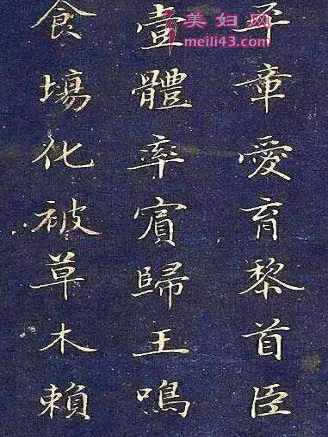 美妇网
meili43.com
平章愛育黎首臣
壹體率賓歸王鳴
食場化被草木賴